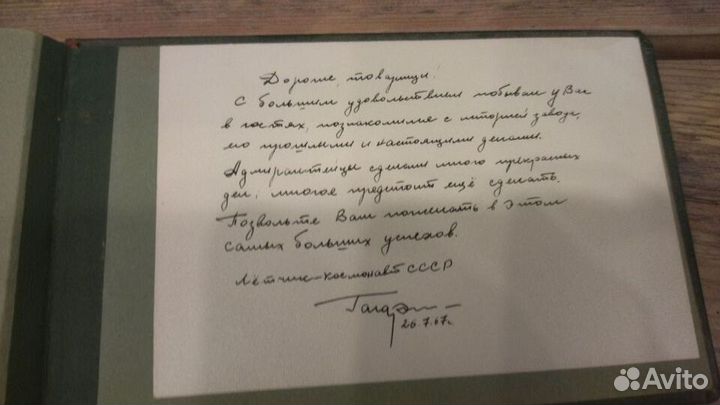 Дорогие товарищи!
С большим удовольствием побывал у Вас
в гостях, познакомился с историей завода,
его прошлыми и настоящими делами.
Адмиралтейцы сделали много прекрасных
дел, многое предстоит ещё сделать.
Позвольте Вам пожелать в этом
самых больших успехов.
Лётчик-космонавт СССР
Гагарин
26.7.67г.
Avito